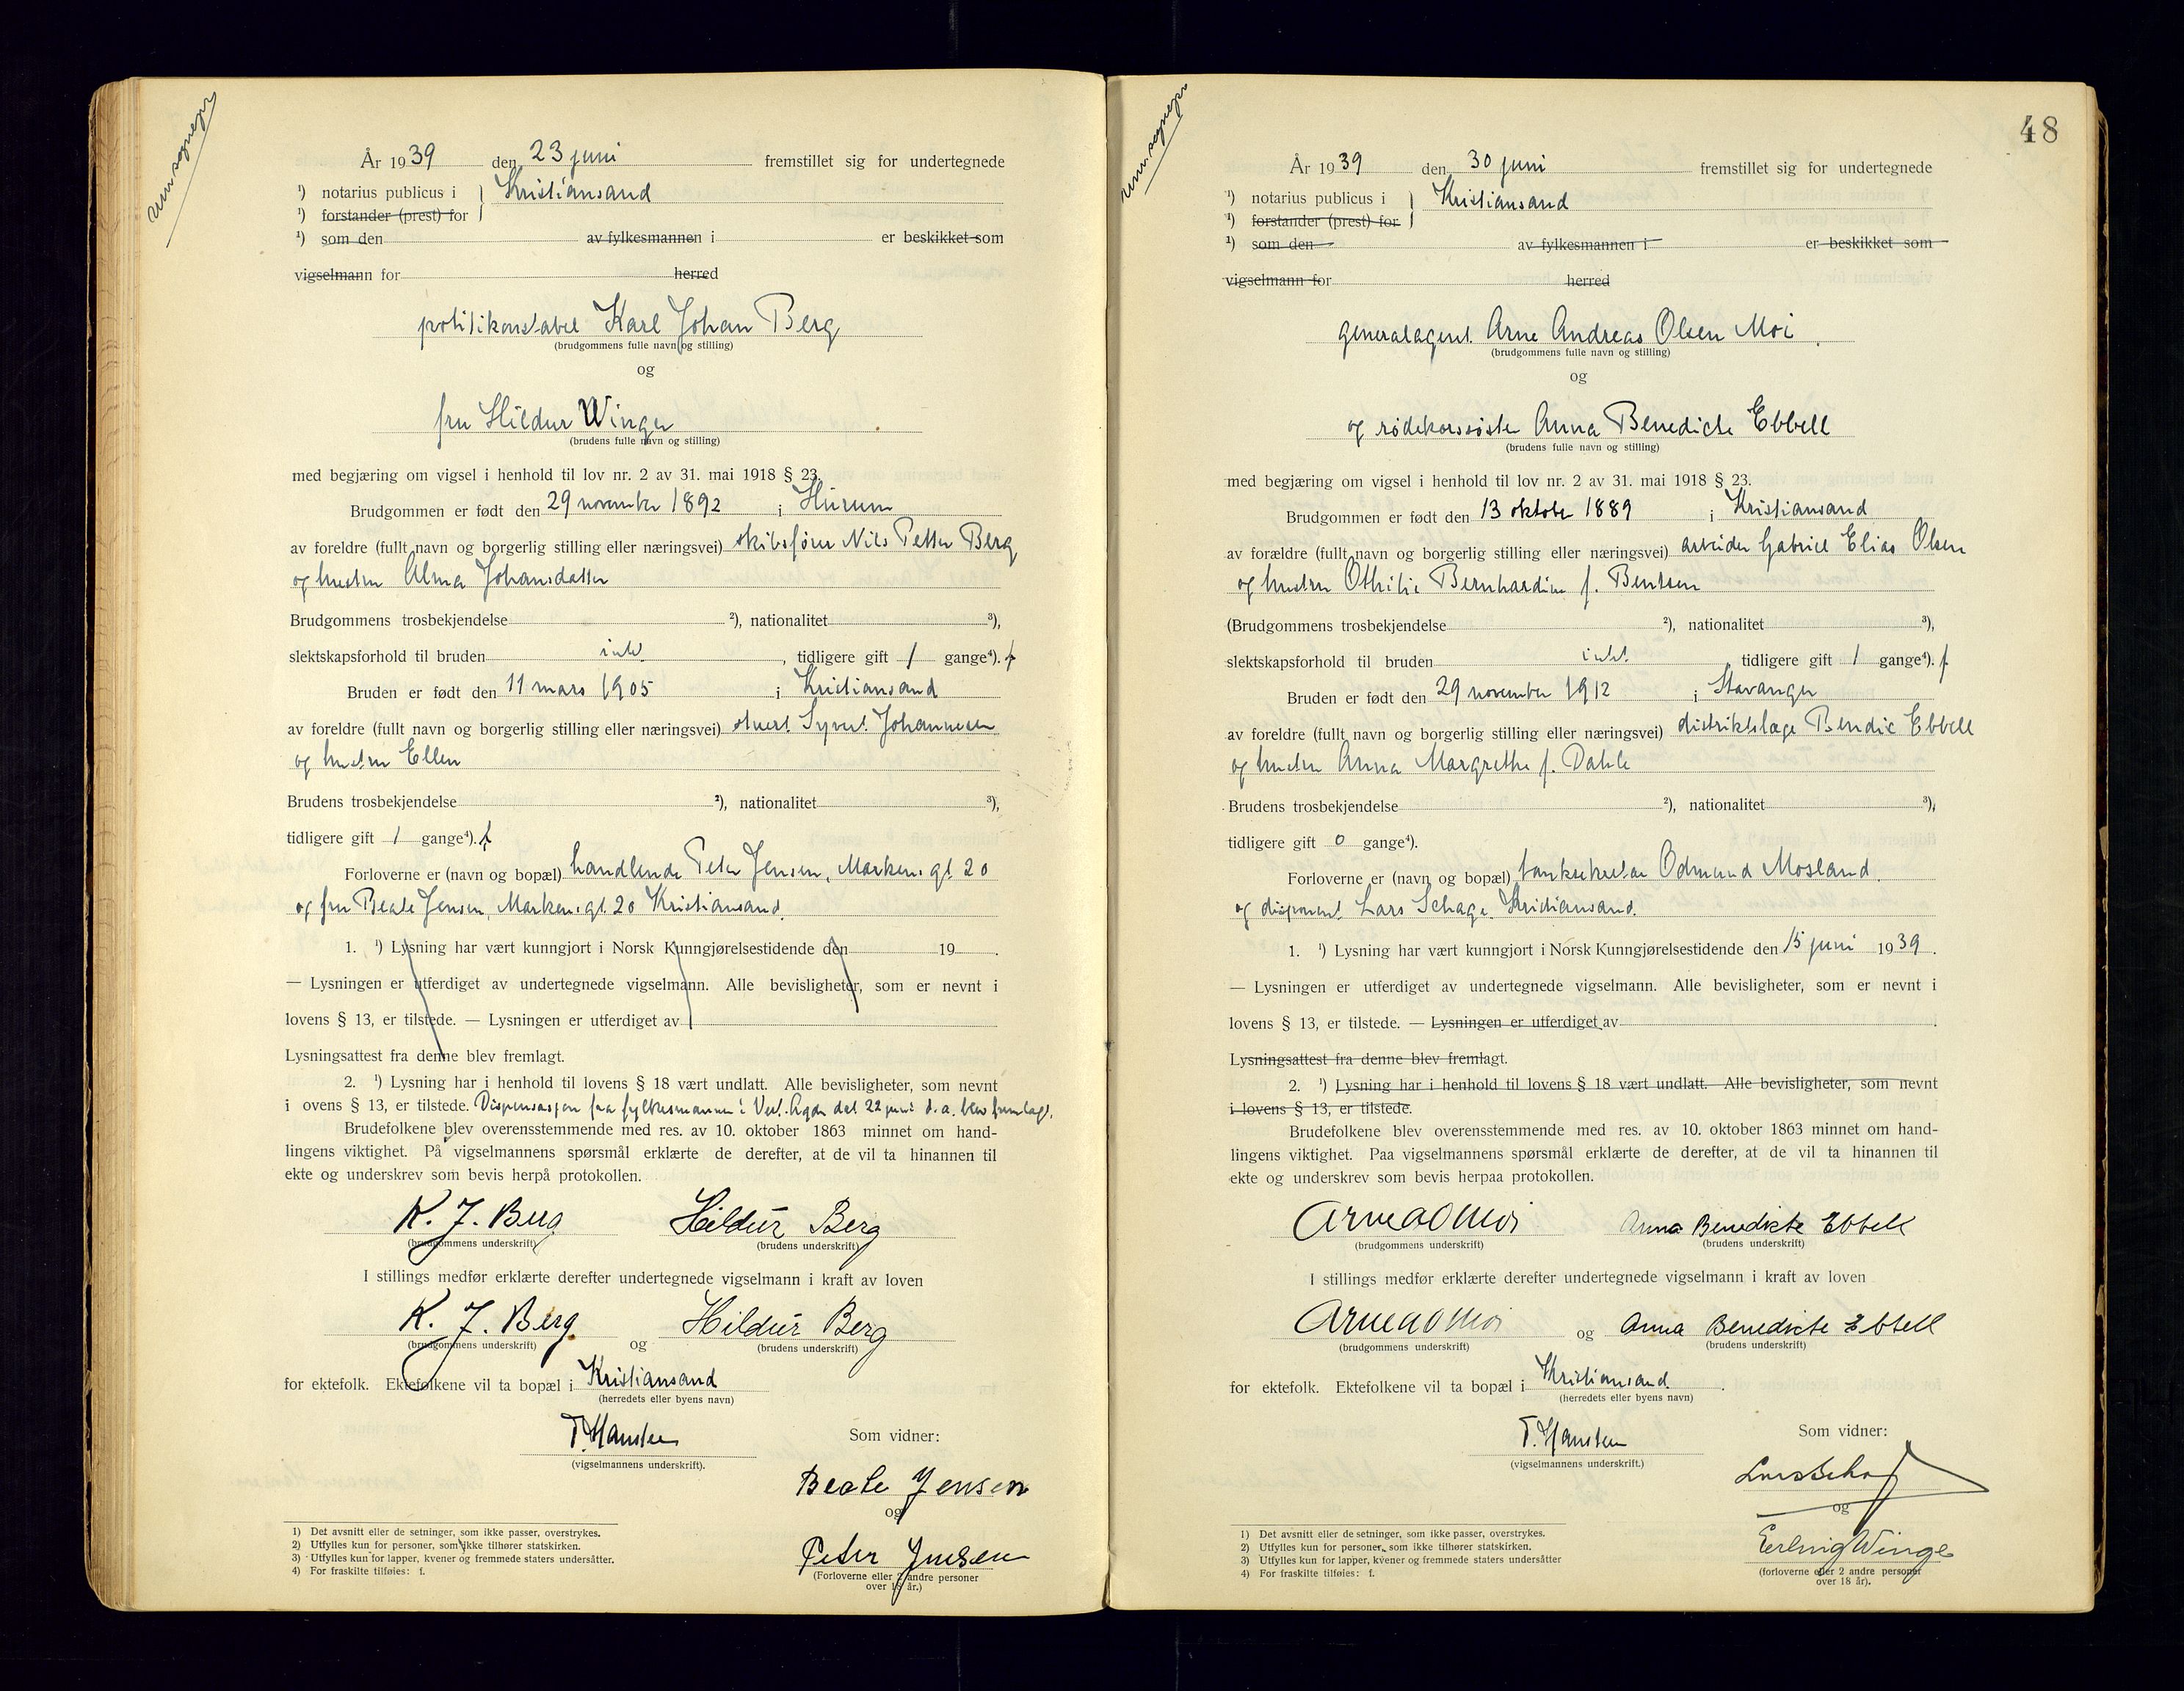 År 1939 den 23 juni fremstillet sig for undertegnede
¹) notarius publicus i } Kristiansand
¹) forstander (prest) for
¹) som den av fylkesmannen i er beskikket som
vigselmann for herred
politikonstabel Karl Johan Berg
(brudgommens fulle navn og stilling)
og
fru Hildur Winge
(brudens fulle navn og stilling)
med begjæring om vigsel i henhold til lov nr. 2 av 31. mai 1918 § 23.
Brudgommen er født den 29 november 1892 i Hurum
av foreldre (fullt navn og borgerlig stilling eller næringsvei) skibsfører Nils Petter Berg
og hustru Alma Johansdatter
Brudgommens trosbekjendelse ²), nationalitet ³),
slektskapsforhold til bruden intet, tidligere gift 1 gange⁴). f
Bruden er født den 11 mars 1905 i Kristiansand
av foreldre (fullt navn og borgerlig stilling eller næringsvei) stuert Syvert Johannesen
og hustru Ellen
Brudens trosbekjendelse ²), nationalitet ³),
tidligere gift 1 gange⁴). f
Forloverne er (navn og bopæl) handlende Peter Jensen, Markens gt 20
og fru Beate Jensen, Markens gt. 20 Kristiansand.
1. ¹) Lysning har vært kunngjort i Norsk Kunngjørelsestidende den 19 .
— Lysningen er utferdiget av undertegnede vigselmann. Alle bevisligheter, som er nevnt i
lovens § 13, er tilstede. — Lysningen er utferdiget av
Lysningsattest fra denne blev fremlagt.
2. ¹) Lysning har i henhold til lovens § 18 vært undlatt. Alle bevisligheter, som nevnt
i ovens § 13, er tilstede. Dispensasjon fra fylkesmannen i Vest-Agder dat 22 juni d.a. blev fremlagt.
Brudefolkene blev overensstemmende med res. av 10. oktober 1863 minnet om hand-
lingens viktighet. På vigselmannens spørsmål erklærte de derefter, at de vil ta hinannen til
ekte og underskrev som bevis herpå protokollen.
K. J. Berg Hildur Berg
(brudgommens underskrift) (brudens underskrift)
I stillings medfør erklærte derefter undertegnede vigselmann i kraft av loven
K. J. Berg og Hildur Berg
(brudgommens underskrift) (brudens underskrift)
for ektefolk. Ektefolkene vil ta bopæl i Kristiansand
(herredets eller byens navn)
T. Hansten
(vigselmannens underskrift).
Som vidner:
Beate Jensen
og
Peter Jensen
(Forloverne eller 2 andre personer
over 18 år.)
1) Det avsnitt eller de setninger, som ikke passer, overstrykes.
2) Utfylles kun for personer, som ikke tilhører statskirken.
3) Utfylles kun for lapper, kvener og fremmede staters undersåtter.
4) For fraskilte tilføies: f.
48
År 1939 den 30 juni fremstillet sig for undertegnede
¹) notarius publicus i } Kristiansand
¹) forstander (prest) for
¹) som den av fylkesmannen i er beskikket som
vigselmann for herred
generalagent Arne Andreas Olsen Moi
(brudgommens fulle navn og stilling)
og
og rødekorssøster Anna Benedicte Ebbell
(brudens fulle navn og stilling)
med begjæring om vigsel i henhold til lov nr. 2 av 31. mai 1918 § 23.
Brudgommen er født den 13 oktober 1889 i Kristiansand
av forældre (fullt navn og borgerlig stilling eller næringsvei) arbeider Gabriel Elias Olsen
og hustru Othilie Bernhardine f. Bentsen
(Brudgommens trosbekjendelse ²), nationalitet ³),
slektskapsforhold til bruden intet, tidligere gift 1 gange⁴). f.
Bruden er født den 29 november 1912 i Stavanger
av foreldre (fullt navn og borgerlig stilling eller næringsvei) distriktslæge Bendix Ebbell
og hustru Anna Margrethe f. Dahle
Brudens trosbekjendelse ²), nationalitet ³),
tidligere gift 0 gange⁴).
Forloverne er (navn og bopæl) banksekretær Odmund Mosland
og disponent Lars Schage, Kristiansand.
1. ¹) Lysning har vært kunngjort i Norsk Kunngjørelsestidende den 15 juni 1939.
— Lysningen er utferdiget av undertegnede vigselmann. Alle bevisligheter, som er nevnt i
lovens § 13, er tilstede. — Lysningen er utferdiget av
Lysningsattest fra denne blev fremlagt.
2. ¹) Lysning har i henhold til lovens § 18 vært undlatt. Alle bevisligheter, som nevnt
i lovens § 13, er tilstede.
Brudefolkene blev overensstemmende med res. av 10. oktober 1863 minnet om hand-
lingens viktighet. Paa vigselmannens spørsmål erklærte de derefter, at de vil ta hinannen til
ekte og underskrev som bevis herpaa protokollen.
Arne A O Moi Anna Benedicte Ebbell
(brudgommens underskrift) (brudens underskrift)
I stillings medfør erklærte derefter undertegnede vigselmann i kraft av loven
Arne A O Moi og Anna Benedicte Ebbell
(brudgommens underskrift) (brudens underskrift)
for ektefolk. Ektefolkene vil ta bopæl i Kristiansand.
(herredets eller byens navn)
T. Hansten
(vigselmannens underskrift.)
Som vidner:
og
Erling Winge
(forloverne eller 2 andre personer
over 18 år).
1) Det avsnitt eller de setninger, som ikke passer, overstrykes.
2) Utfylles kun for personer, som ikke tilhører statskirken.
3) Utfylles kun for lapper, kvener og fremmede staters undersåtter
4) For fraskilte tilføies: f.